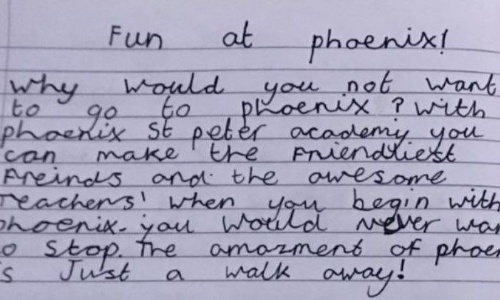 Fun at phoenix!
Why would you not want
to go to phoenix? with
phoenix St peter academy you
can make the Friendliest
Freinds and the awesome
Teachers' when you begin with
phoenix. you would never wan
to stop. The amazment of phoen
is Just a walk away!